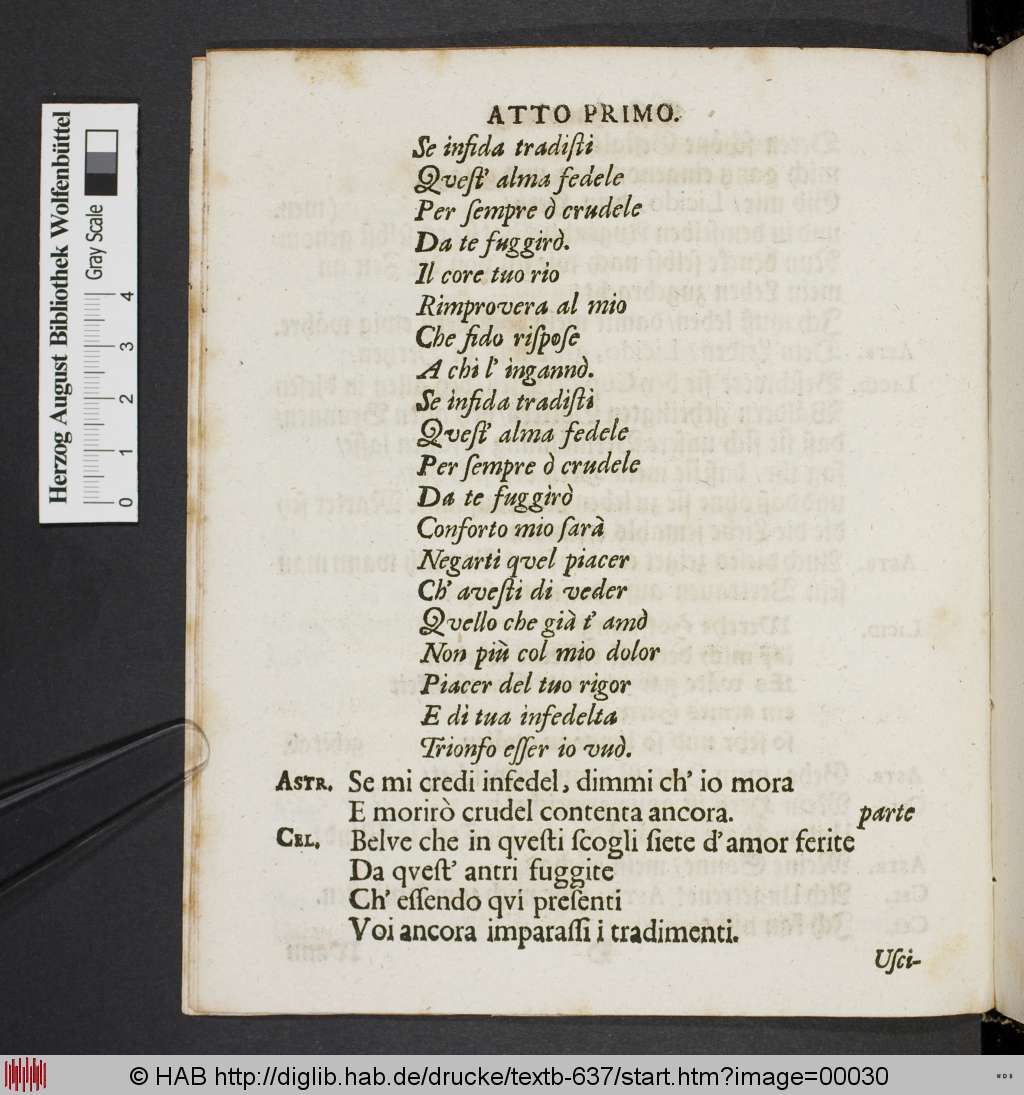 ATTO PRIMO.
Se infida tradiſti
Queſt' alma fedele
Per ſempre ò crudele
Da te fuggirò.
Il core tuo rio
Rimprovera al mio
Che fido riſpoſe
A chi l' ingannò.
Se infida tradiſti
Queſt' alma fedele
Per ſempre ò crudele
Da te fuggirò
Conforto mio ſarà
Negarti qvel piacer
Ch' aveſti di veder
Qvello che già t' amò
Non più col mio dolor
Piacer del tuo rigor
E di tua infedelta
Trionfo eſſer io vuò.
ASTR. Se mi credi infedel, dimmi ch' io mora
E morirò crudel contenta ancora. parte
CEL. Belve che in qveſti ſcogli ſiete d'amor ferite
Da qveſt' antri fuggite
Ch' eſſendo qvi preſenti
Voi ancora imparaſſi i tradimenti.
Uſci-
Herzog August Bibliothek Wolfenbüttel
Gray Scale
0 1 2 3 4
© HAB http://diglib.hab.de/drucke/textb-637/start.htm?image=00030